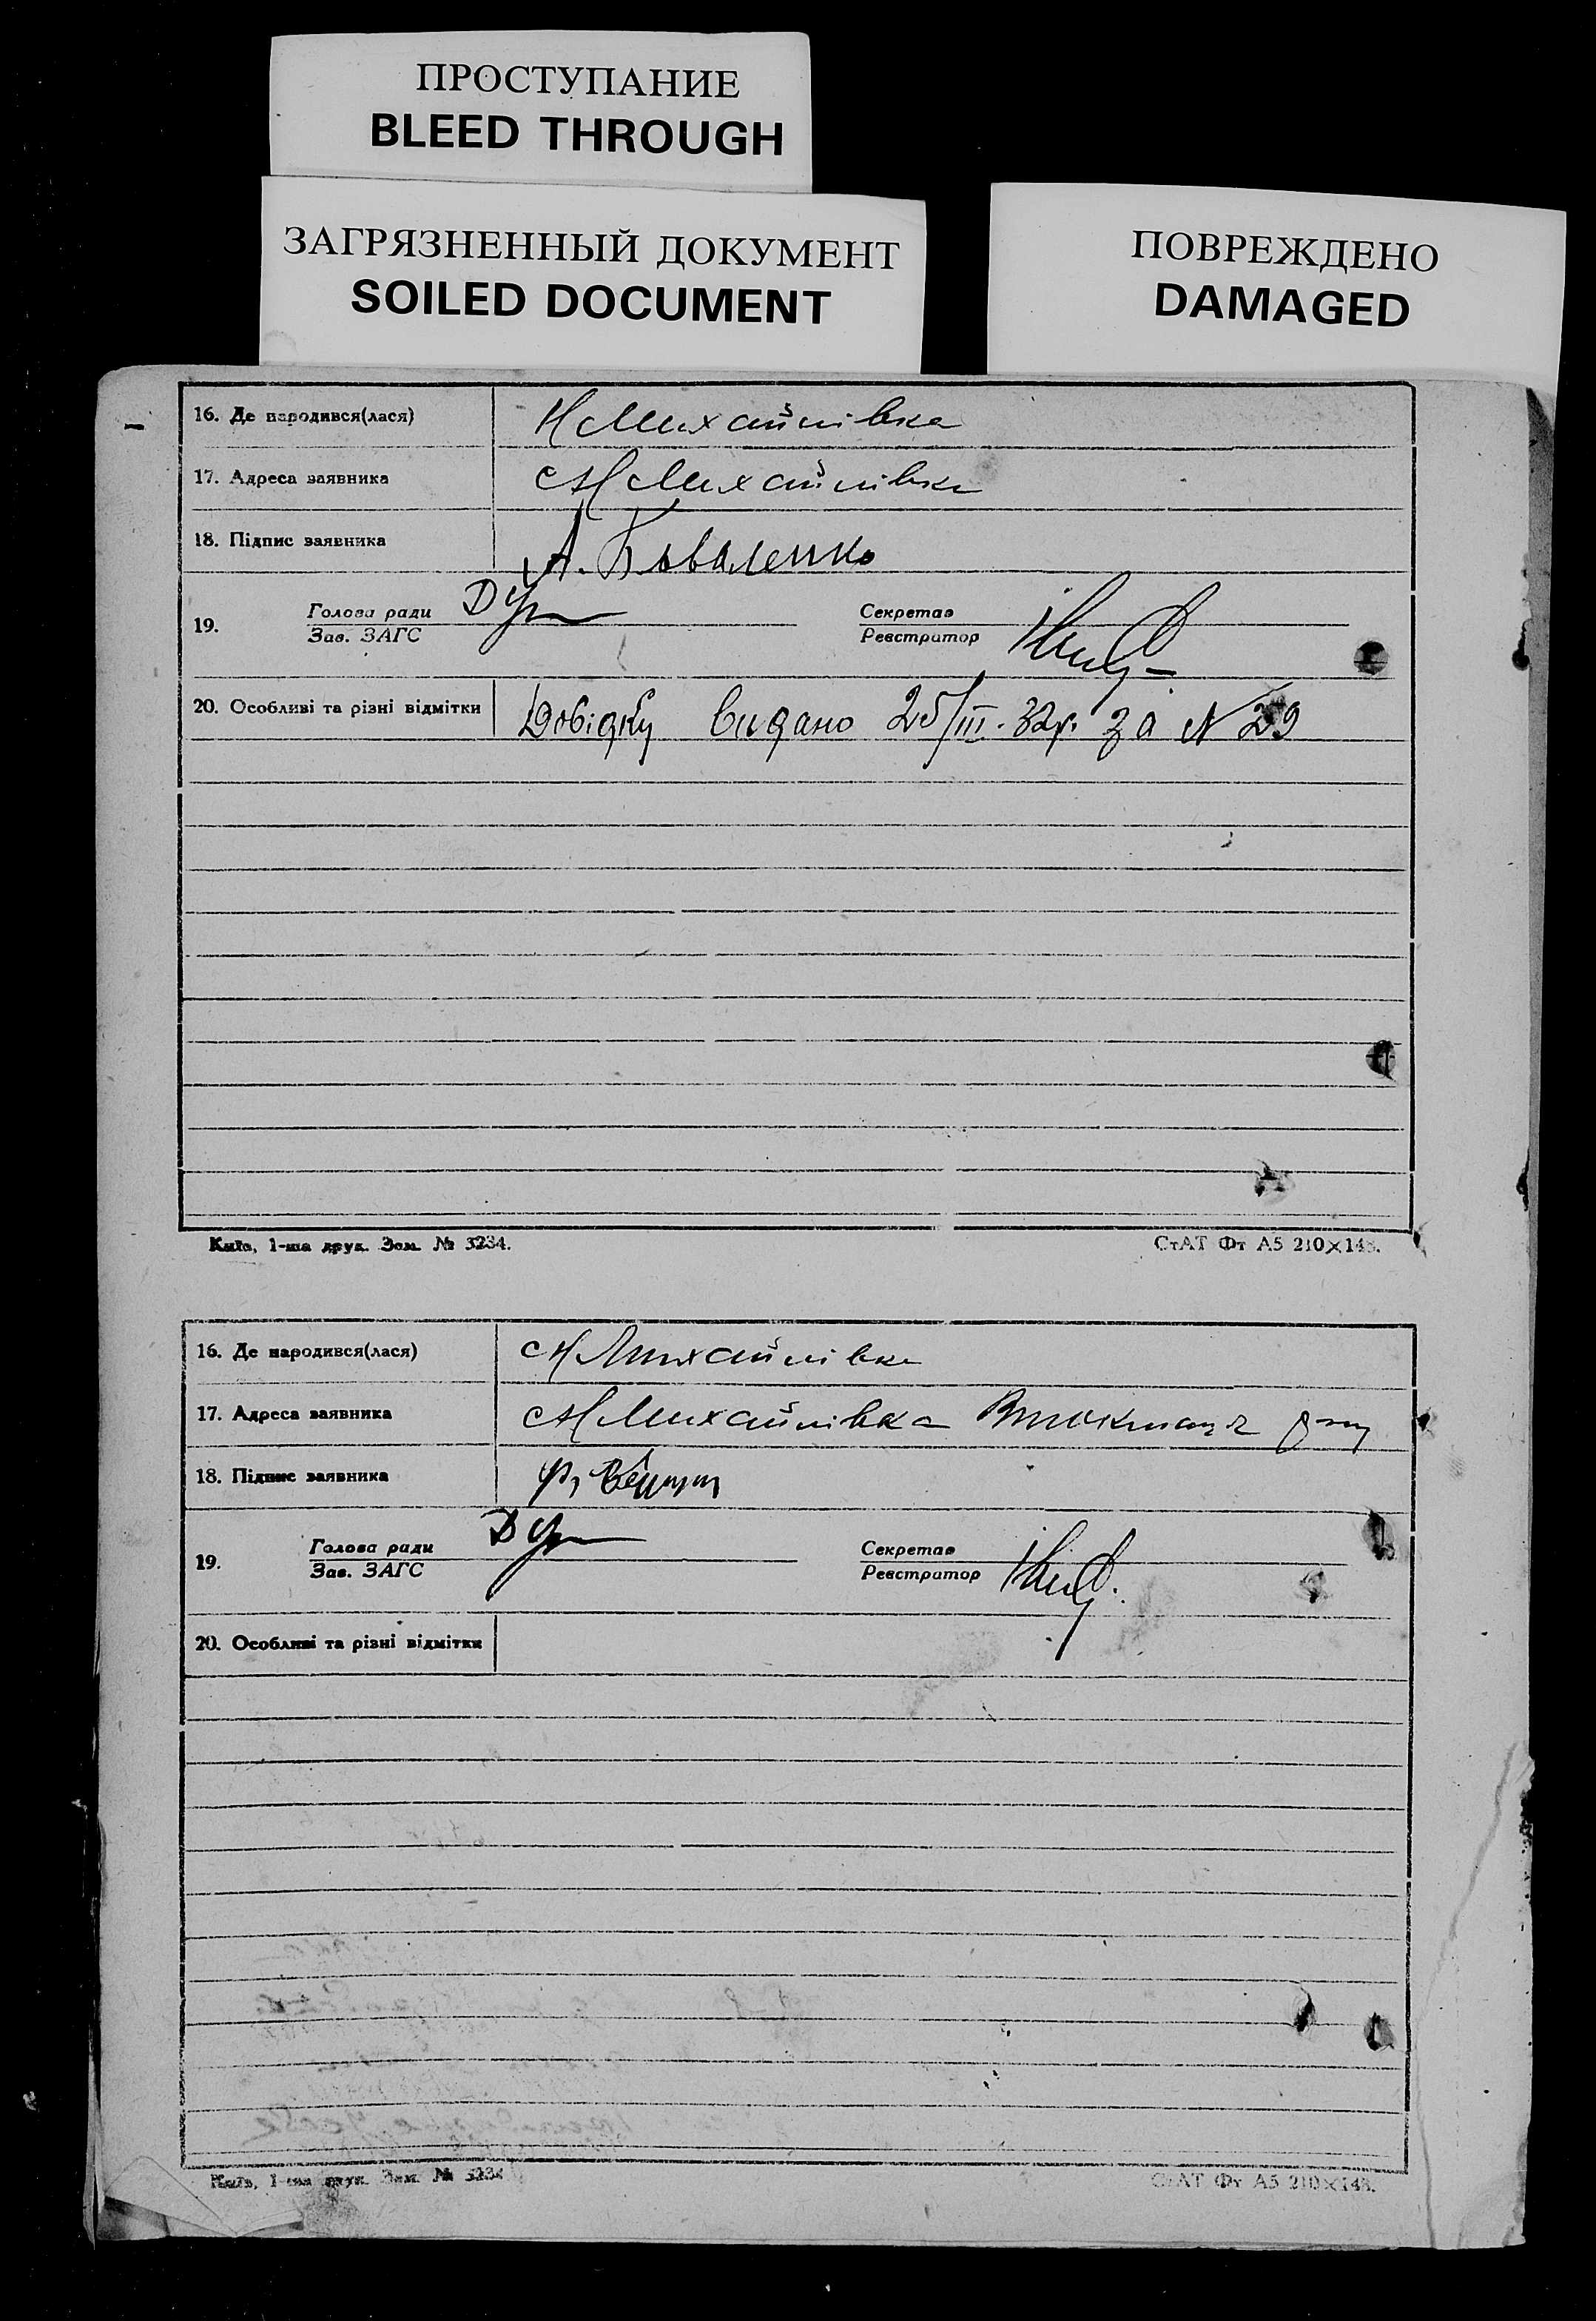 ПРОСТУПАНИЕ
BLEED THROUGH
ЗАГРЯЗНЕННЫЙ ДОКУМЕНТ
SOILED DOCUMENT
ПОВРЕЖДЕНО
DAMAGED
16. Де народився(лася) Н Михайлівка
17. Адреса заявника с Н Михайлівка
18. Підпис заявника А. Коваленко
19. Голова ради Секретар
Зав. ЗАГС Реєстратор
20. Особливі та різні відмітки Довідку видано 25/III. 32р. за N 29
Київ, 1-ша друк. Зам. № 3234. СтАТ Фт А5 210×148.
16. Де народився(лася) с Н Михайлівка
17. Адреса заявника с Н Михайлівка
18. Підпис заявника
19. Голова ради Секретар
Зав. ЗАГС Реєстратор
20. Особливі та різні відмітки
Київ, 1-ша друк. Зам. № 3234 СтАТ Фт А5 210×148.